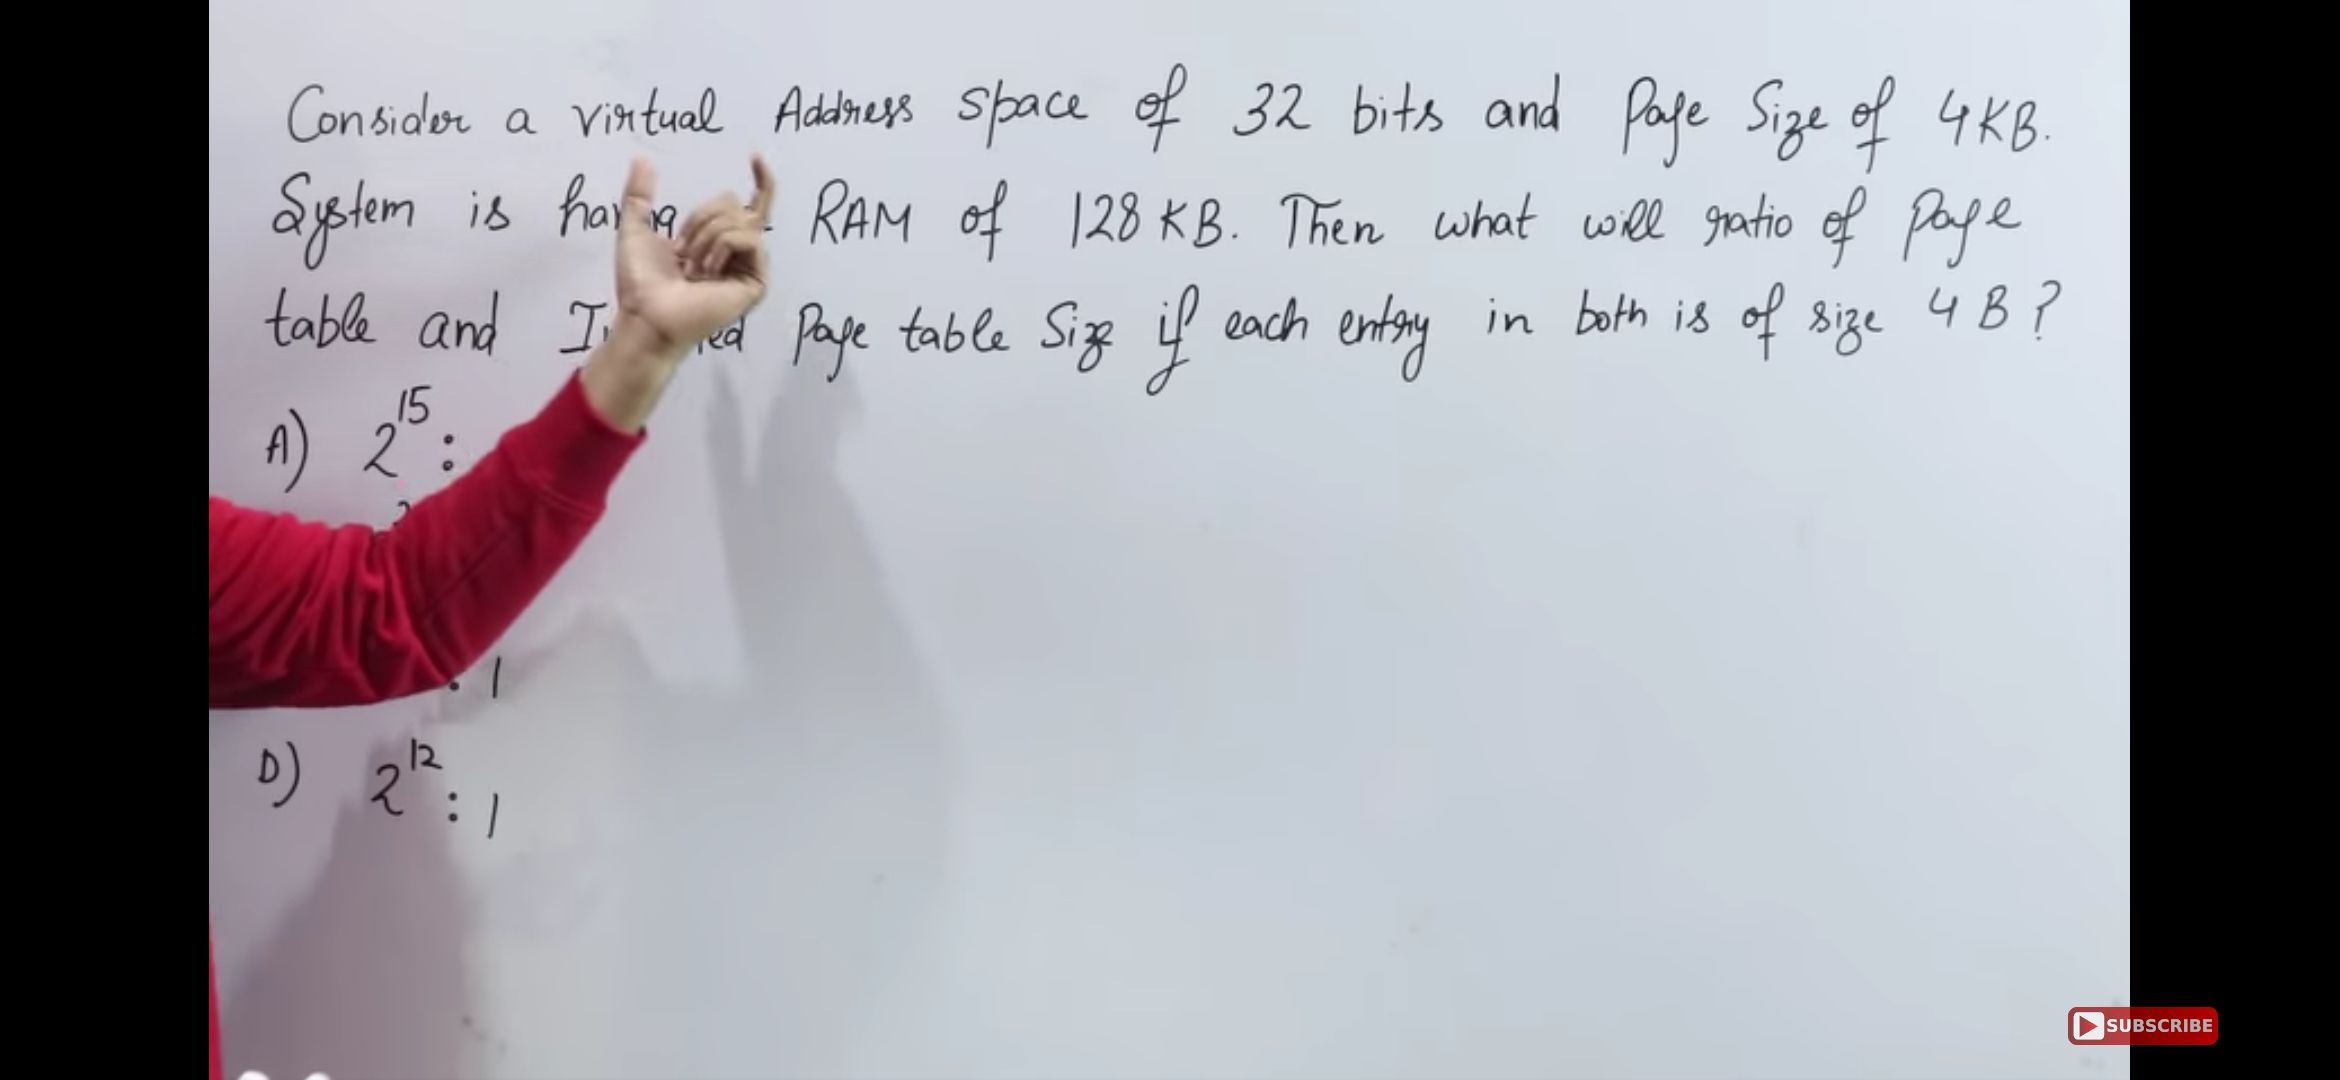 Consider a virtual Address space of 32 bits and Page Size of 4KB.
System is RAM of 128 KB. Then what will ratio of Page
table and Page table Size if each entry in both is of size 4 B?
A) 2^15 :
: 1
D) 2^12 : 1
SUBSCRIBE